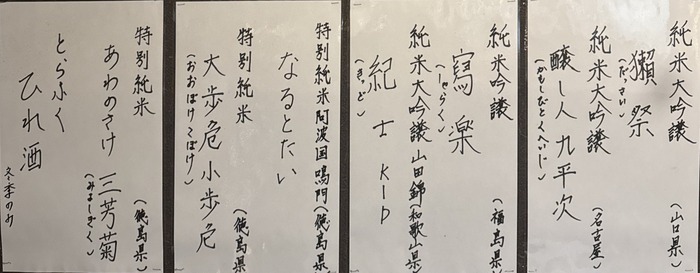 純米大吟醸（山口県）
獺祭
（だっさい）
純米大吟醸（名古屋）
醸し人九平次
（かもしびとくへいじ）
純米吟醸（福島県）
寫楽
（しゃらく）
純米大吟醸山田錦（和歌山県）
紀士 KID
（きっど）
特別純米阿波国鳴門（徳島県）
なるとたい
特別純米（徳島県）
大歩危小歩危
（おおぼけこぼけ）
特別純米（徳島県）
あわのさけ 三芳菊
（みよしきく）
とらふく
ひれ酒
冬季のみ